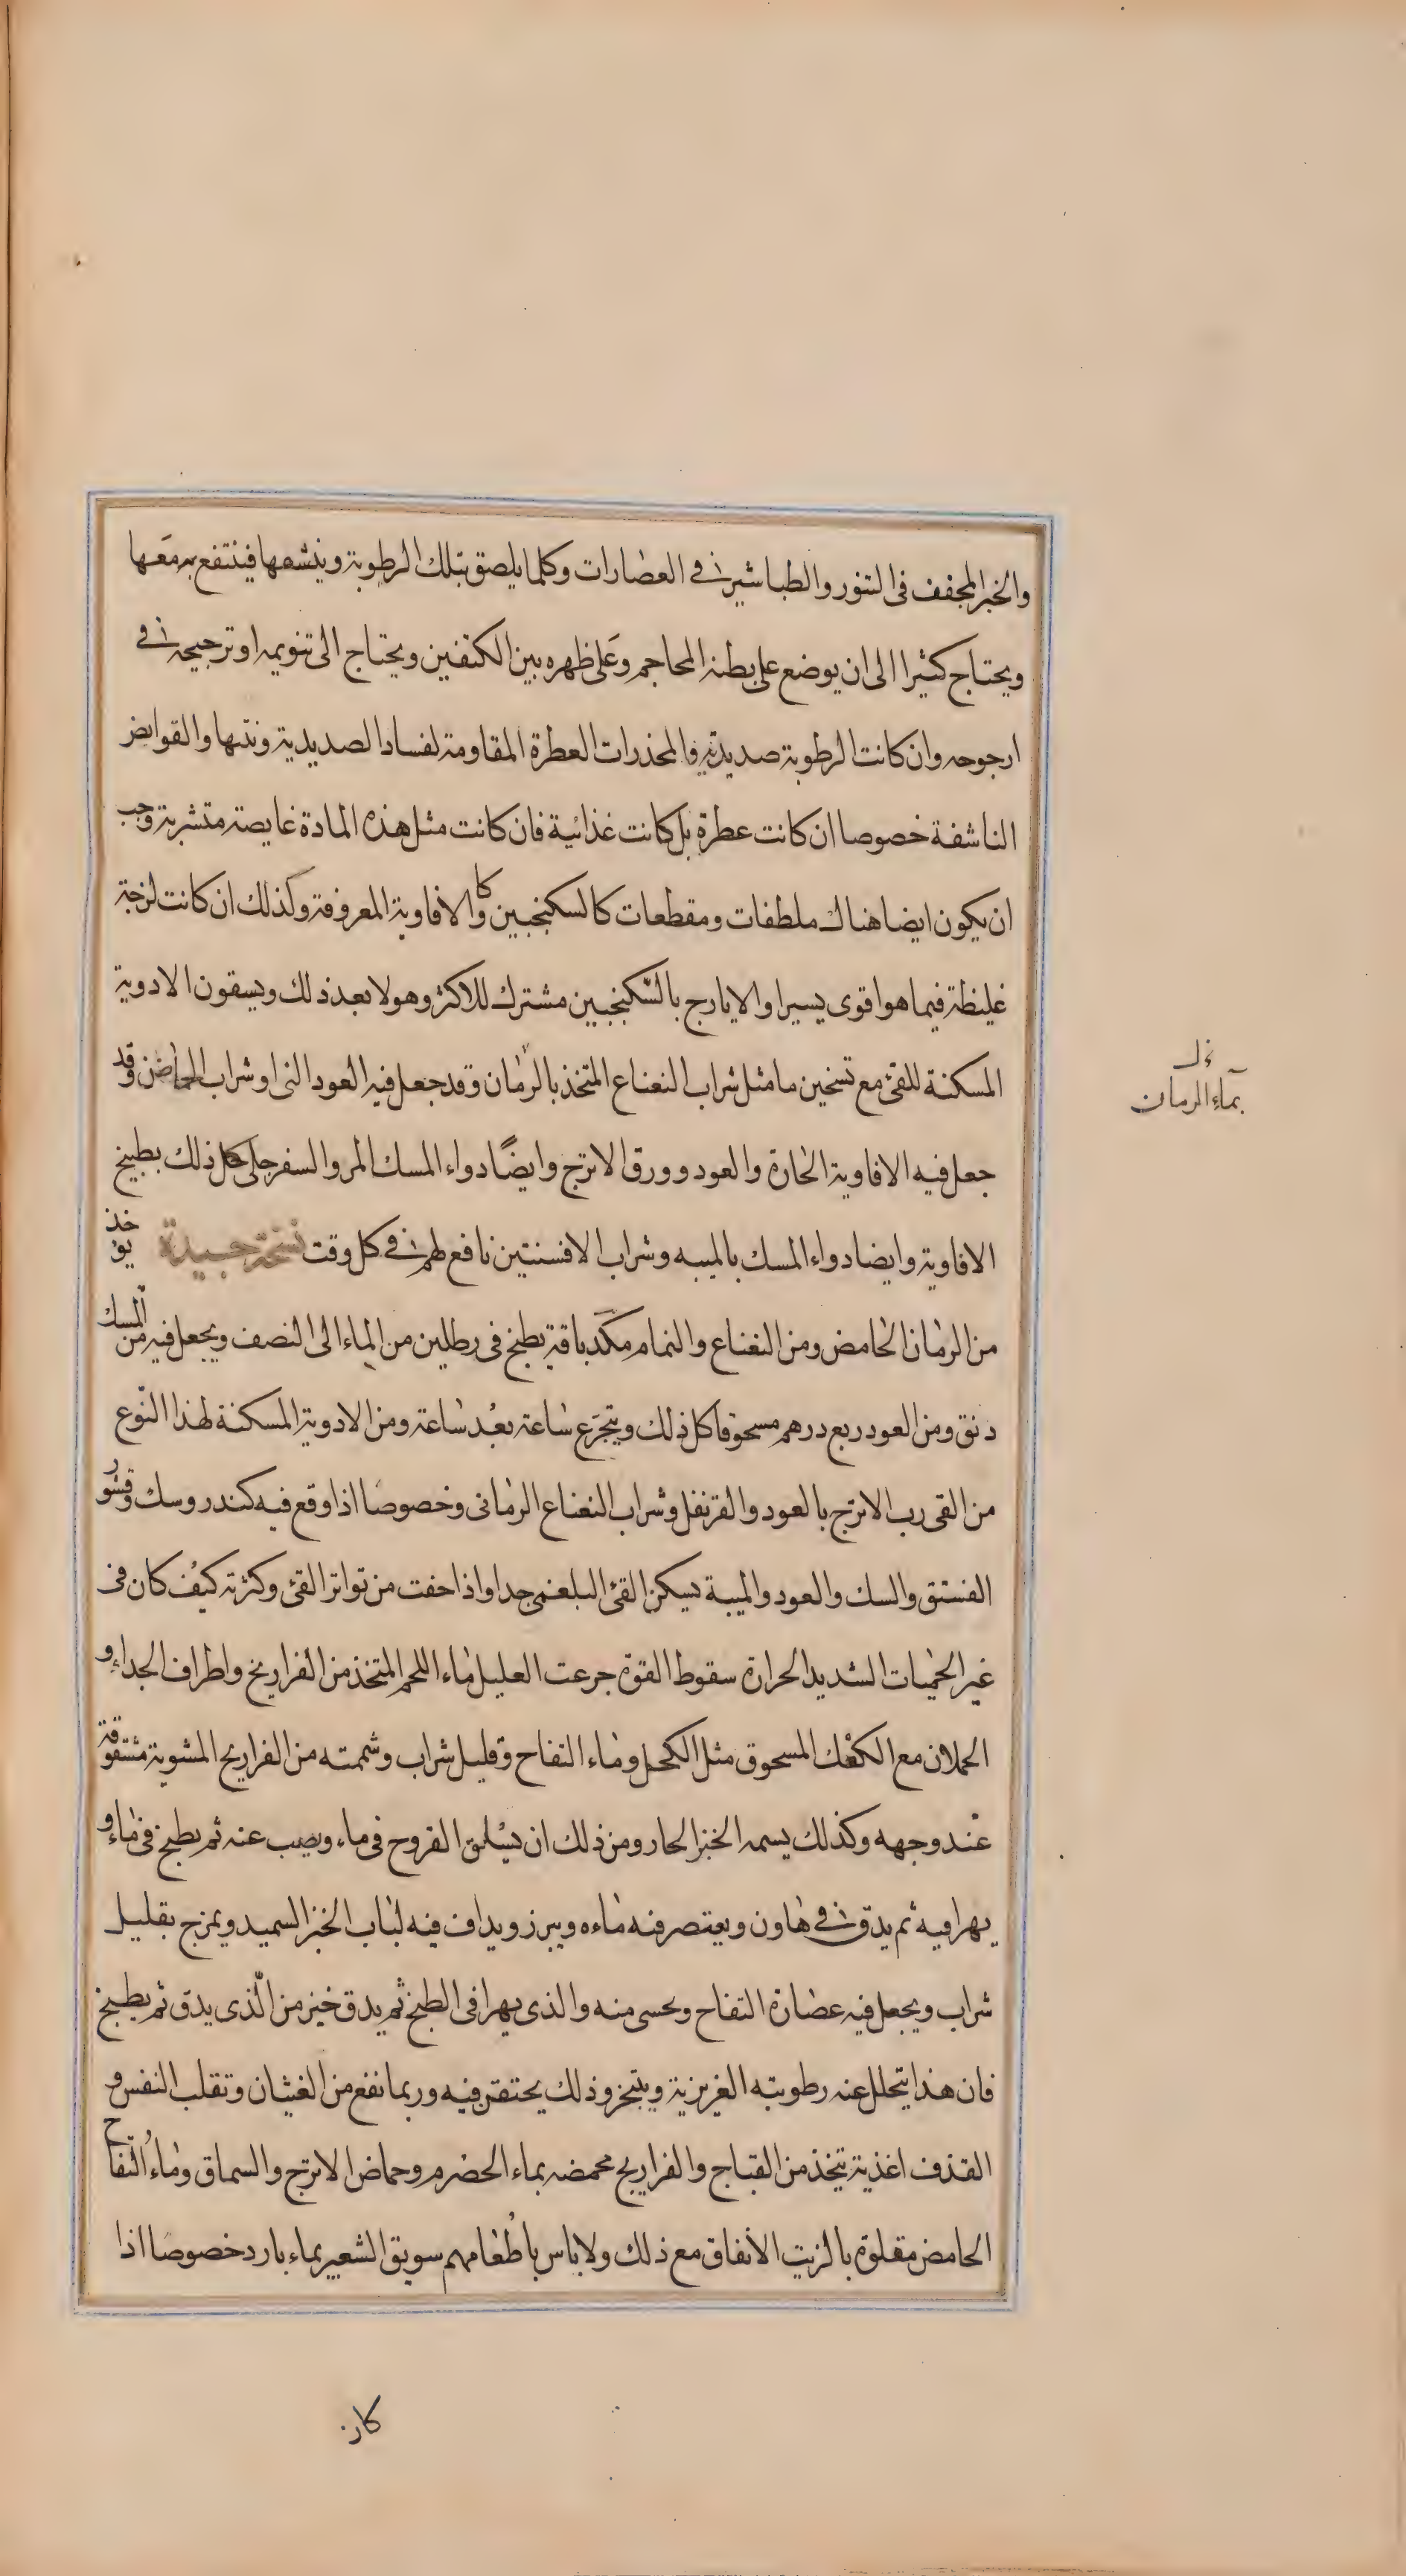 والخبز المجفف فى التنور والطباشير فى العصارات وكلما يلصق بتلك الرطوبة وينشفها فينتفع به معها
ويحتاج كثيرا الى ان يوضع على بطنه المحاجم وعلى ظهره بين الكتفين ويحتاج الى تنويمه او ترجيحه فى
ارجوحه وان كانت الرطوبة صديدية فالمخدرات العطرة المقاومة لفساد الصديدية ونتنها والقوابض
الناشفة خصوصا ان كانت عطرة بل كانت غذائية فان كانت مثل هذه المادة غايصة متشربة وجب
ان يكون ايضا هناك ملطفات ومقطعات كالسكنجبين وكالافاوية المعروفة وكذلك ان كانت لزجة
غليظة فيما هو اقوى يسيرا والايارج بالسكنجبين مشترك للاكثر وهولا بعد ذلك ويسقون الادوية
المسكنة للقئ مع تسخين ما مثل شراب النعناع المتخذ بالرمان وقد جعل فيه العود النى او شراب الحماض وقد
جعل فيه الافاوية الحارة والعود وورق الاترج وايضًا دواء المسك المر والسفرجلى كل ذلك بطبيخ
الافاوية وايضا دواء المسك بالميبه وشراب الافسنتين نافع لهم فى كل وقت نسخة جيدة يوخذ
من الرمان الحامض ومن النعناع والنمام مكد باقة يطبخ فى رطلين من الماء الى النصف ويجعل فيه من المسك
دنق ومن العود ربع درهم مسحوقا كل ذلك ويتجرع ساعة بعد ساعة ومن الادوية المسكنة لهذا النوع
من القى رب الاترج بالعود والقرنفل وشراب النعناع الرمانى وخصوصا اذا وقع فيه كندر وسك وقشور
الفستق والسك والعود والميبة يسكن القئ البلغمى جدا واذا خفت من تواتر القئ وكثرته كيف كان فى
غير الحميات الشديد الحرارة سقوط القوة جرعت العليل ماء اللحم المتخذ من الفراريخ واطراف الجداء و
الحملان مع الكعك المسحوق مثل الكحل وماء التفاح وقليل شراب وشممته من الفراريج المشوية مشقوقة
عند وجهه وكذلك يسمه الخبز الحار ومن ذلك ان يسلق الفروج فى ماء ويصب عنه ثم يطبخ فى ماء و
يهرا فيه ثم يدق فى هاون ويعتصر فنه ماءه ويبرز ويداف فيه لباب الخبز السميد ويمزج بقليل
شراب ويجعل فيه عصارة التفاح ويحسى منه والذى يهرا فى الطبخ ثم يدق خير من الذى يدق ثم يطبخ
فان هذا يتحلل عنه رطوبته الغريزية ويتبخر وذلك يحتقن فيه وربما نفع من الغثيان وتقلب النفس و
القذف اغذية تتخذ من القباج والفراريج محمضه بماء الحصرم وحماض الاترج والسماق وماء التفاح
الحامض مقلوة بالزيت الانفاق مع ذلك ولا باس باطعامهم سويق الشعير بماء بارد خصوصا اذا
بماء الرمان
كان